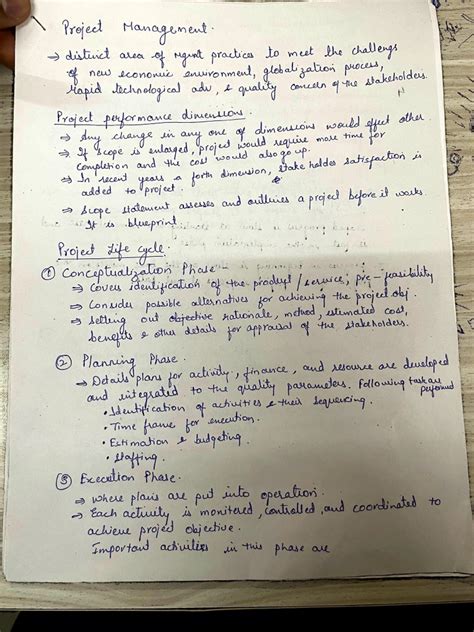 Project Management.
→ distinct area of Mgmt practices to meet the challengs
of new economic environment, globalization process,
rapid technological adv, & quality concern of the stakeholders.
Project performance dimensions.
⇒ Any change in any one of dimensions would effect other
⇒ If scope is enlarged, project would require more time for
completion and the cost would also go up.
⇒ In recent years a forth dimension, stakeholder satisfaction is
added to project.
⇒ Scope statement assesses and outlines a project before it works
It is blueprint.
Project Life Cycle.
① Conceptualization Phase
⇒ Covers identification of the product / service, pre-feasibility
⇒ Consider possible alternatives for achieving the project obj.
⇒ Setting out objective rationale, method, estimated cost,
benefits & other details for appraisal of the stakeholders.
② Planning Phase.
⇒ Details plans for activity, finance, and resource are developed
and integrated to the quality parameters. Following task are
performed
• Identification of activities & their sequencing.
• Time frame for execution.
• Estimation & budgeting.
• Staffing.
③ Execution Phase.
⇒ where plans are put into operation.
⇒ Each activity is monitered, controlled, and coordinated to
achieve project objective.
Important activities in this phase are